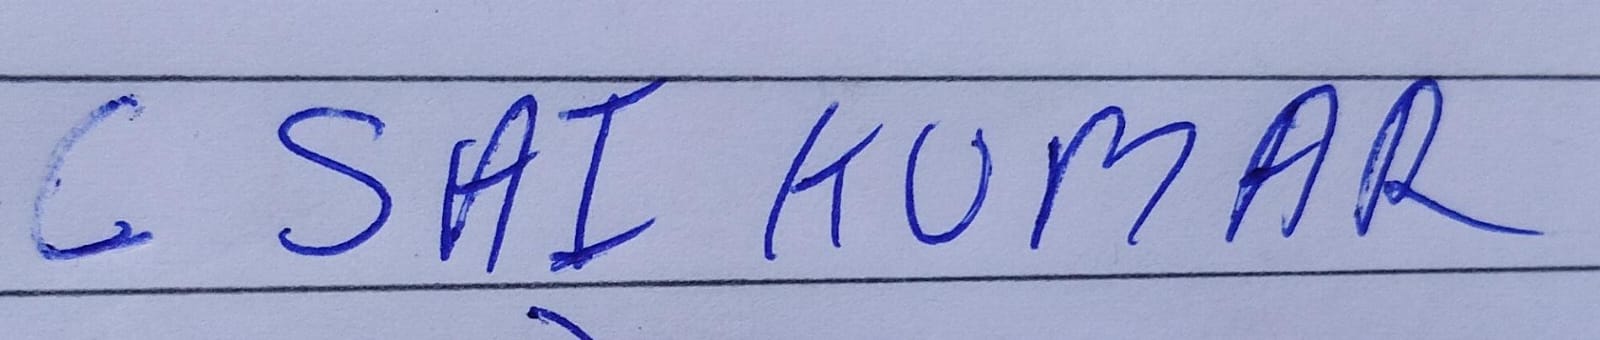 C SAI KUMAR